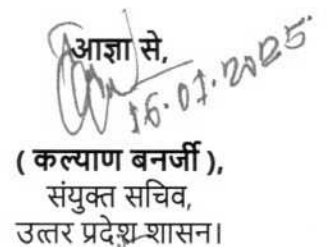 आज्ञा से,
16.07.2025
( कल्याण बनर्जी ),
संयुक्त सचिव,
उत्तर प्रदेश शासन।